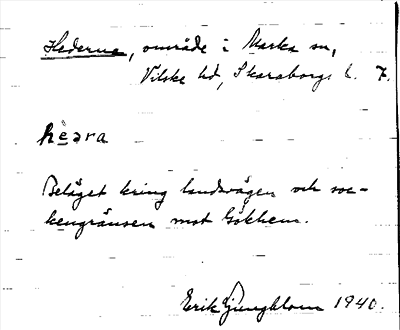 Hederna, område i Marka sn,
Vilske hd, Skaraborgs l. 7.
heara
Beläget kring landsvägen och soc-
kengränsen mot Gökhem.
Erik Ljungblom 1940.